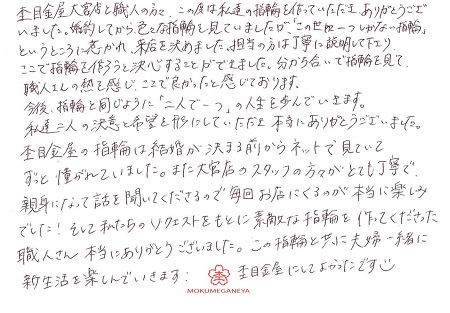 杢目金屋大宮店と職人の方々、この度は私達の指輪を作っていただき ありがとうござ
いました。婚約してから、色々な指輪を見ていましたが、「この世に一つしかない指輪」
というところに惹かれ、来店を決めました。担当の方は丁寧に説明して下さり
ここで指輪を作ろうと決心することができました。分かち合いで指輪を見て、
職人さんの熱を感じ、ここで良かったと感じております。
今後、指輪と同じように「二人で一つ」の人生を歩んでいきます。
私達二人の決意と希望を形にしていただき 本当にありがとうございました。
杢目金屋の指輪は結婚が決まる前からネットで見ていて
ずっと憧れていました。また大宮店のスタッフの方々がとても丁寧で、
親身になって話を聞いてくださるので毎回お店にくるのが本当に楽しみ
でした！そして私たちのリクエストをもとに素敵な指輪を作ってくださった
職人さん 本当にありがとうございました。この指輪と共に夫婦一緒に
新生活を楽しんでいきます！ 杢目金屋にしてよかったです
MOKUMEGANEYA